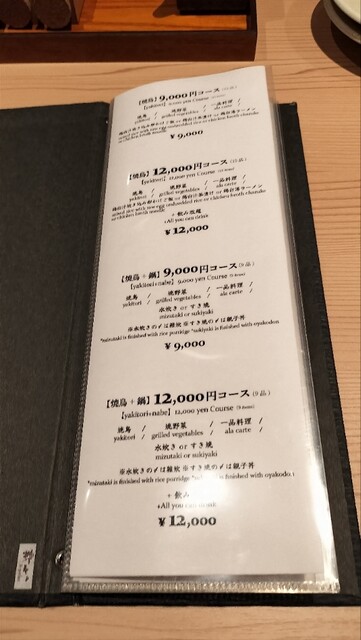 【焼鳥】9,000円コース
【yakitori】 9,000 yen Course
焼鳥 / 焼野菜 / 一品料理 /
yakitori / grilled vegetables / ala carte /
¥9,000
【焼鳥】12,000円コース
【yakitori】 12,000 yen Course
焼鳥 / 焼野菜 / 一品料理 /
yakitori / grilled vegetables / ala carte /
+飲み放題
+All you can drink
¥12,000
【焼鳥+鍋】9,000円コース
【yakitori+nabe】 9,000 yen Course
焼鳥 / 焼野菜 / 一品料理 /
yakitori / grilled vegetables / ala carte /
水炊き or すき焼
mizutaki or sukiyaki
※水炊きの〆は雑炊 ※すき焼の〆は親子丼
*mizutaki is finished with rice porridge *sukiyaki is finished with oyakodon
¥9,000
【焼鳥+鍋】12,000円コース(9品)
【yakitori+nabe】 12,000 yen Course
焼鳥 / 焼野菜 / 一品料理 /
yakitori / grilled vegetables / ala carte /
水炊き or すき焼
mizutaki or sukiyaki
※水炊きの〆は雑炊 ※すき焼の〆は親子丼
*mizutaki is finished with rice porridge is finished with oyakodo
+飲み
+All you can drink
¥12,000